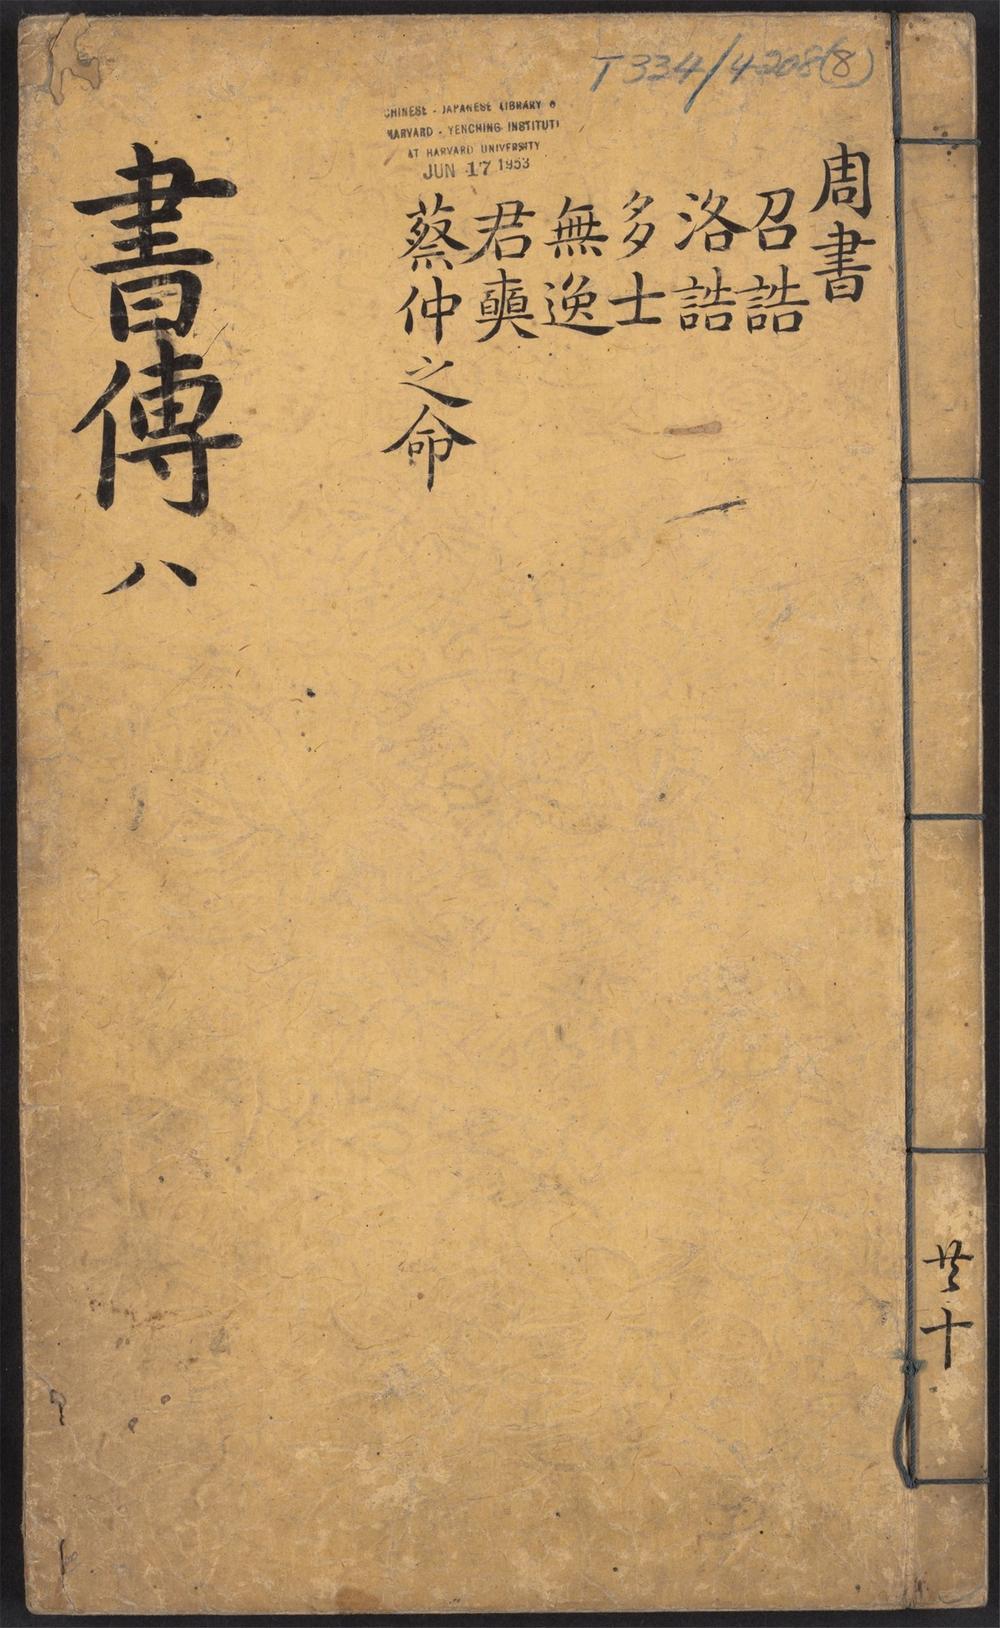 T334/4208(8)
CHINESE - JAPANESE LIBRARY O
HARVARD - YENCHING INSTITUTI
AT HARVARD UNIVERSITY
JUN 17 1953
周書
召誥
洛誥
多士
無逸
君奭
蔡仲之命
書傳 八
共十